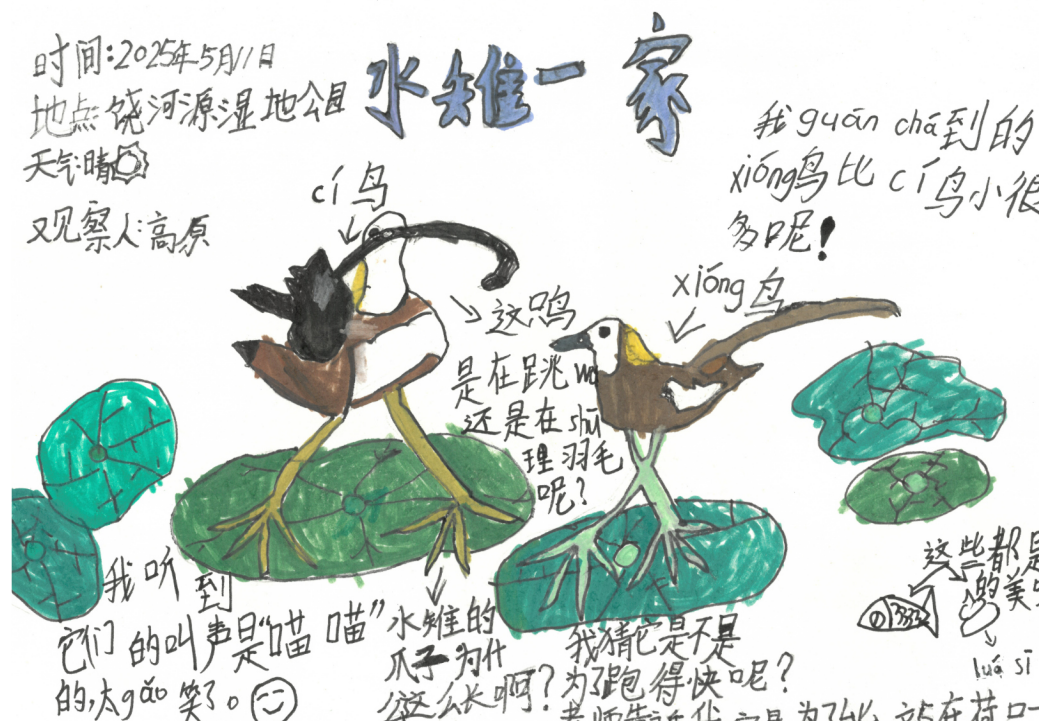 水雉一家
时间:2025年5月11日
地点饶河源湿地公园
天气:晴
观察人:高原
我guān chá到的
xióng鸟比cí鸟小很
多呢!
cí鸟
xióng鸟
这只鸟
是在跳wǔ
还是在shū
理羽毛
呢?
我听到
它们的叫声是“喵喵”
的,太gǎo笑了。
水雉的
爪子为什
么这么长啊?
我猜它是不是
为了跑得快呢?
这些都是
的美
luó sī